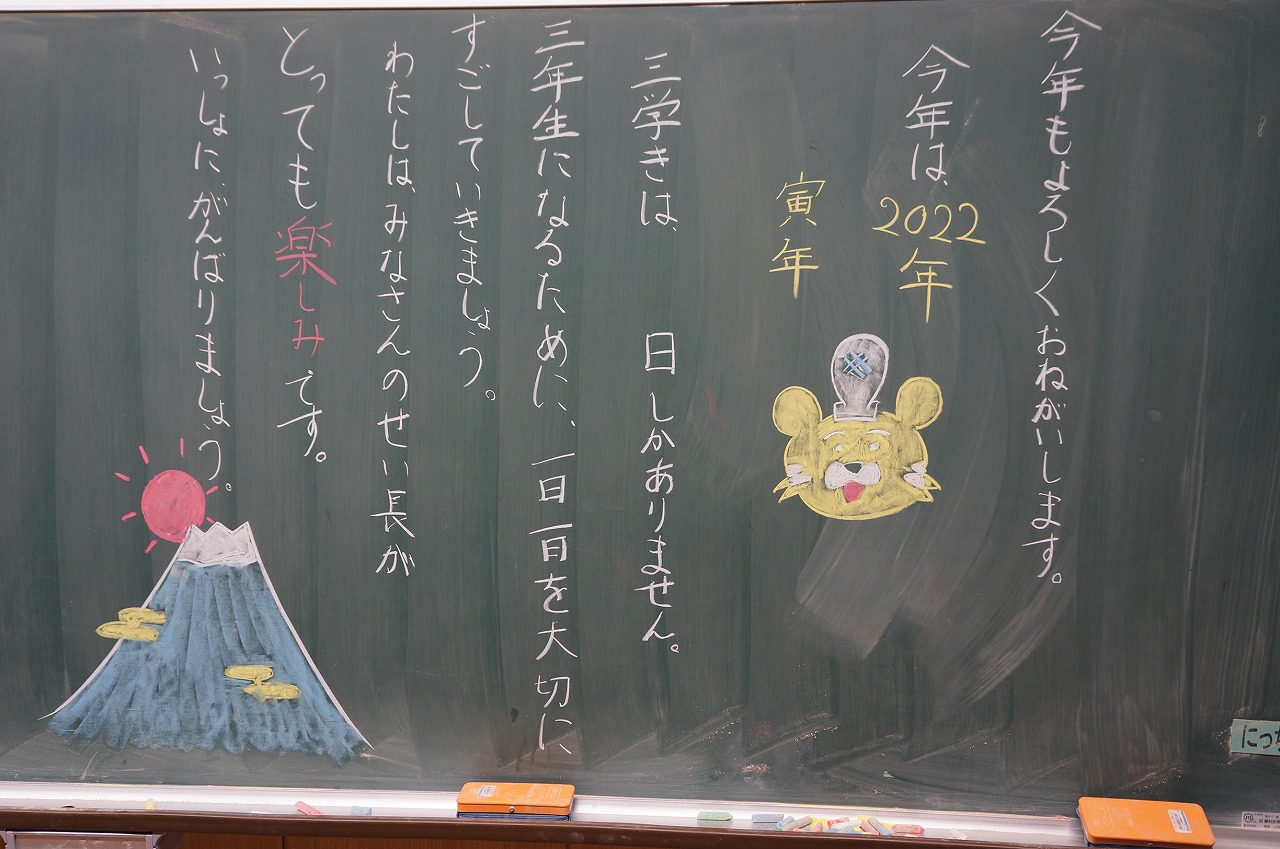 今年もよろしくおねがいします。
今年は、2022年
寅年
三学きは、　　日しかありません。
三年生になるために、一日一日を大切に
すごしていきましょう。
わたしは、みなさんのせい長が
とっても楽しみです。
いっしょに、がんばりましょう。
にっち